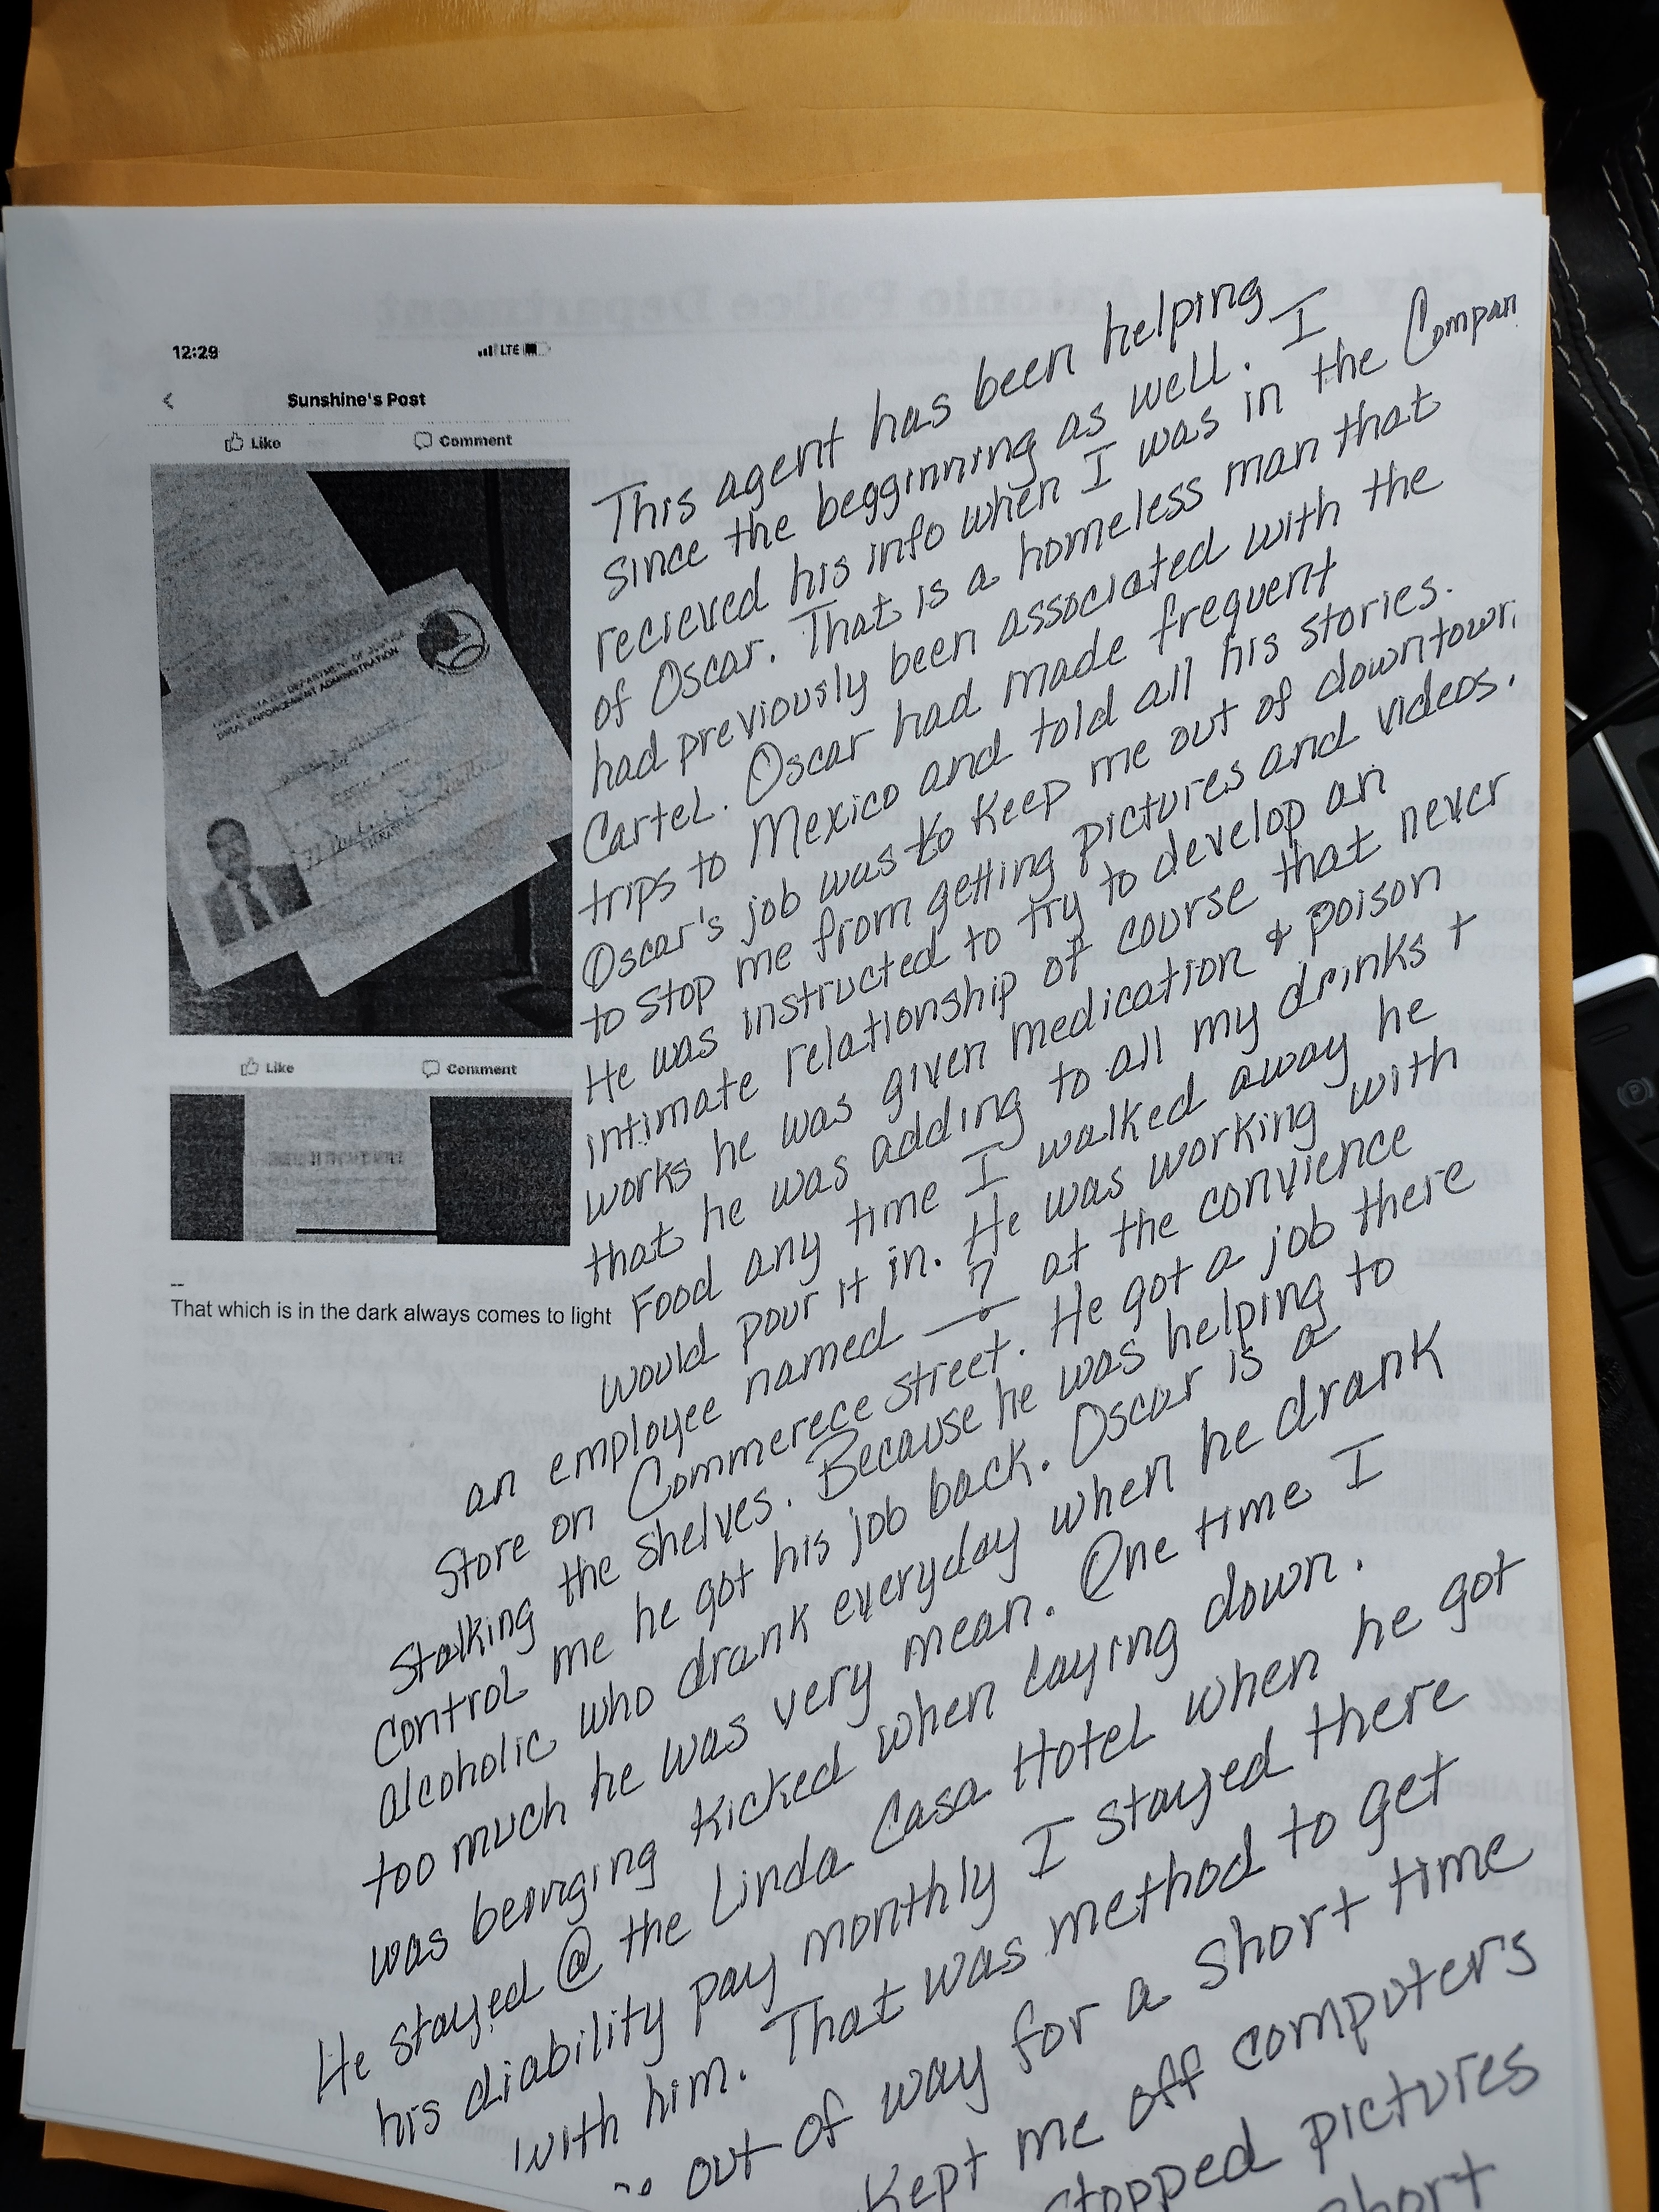 City of San Antonio Police Department
12:29
LTE
Sunshine's Post
Like
Comment
UNITED STATES DEPARTMENT OF JUSTICE
DRUG ENFORCEMENT ADMINISTRATION
Like
Comment
That which is in the dark always comes to light
This agent has been helping
since the begginning as well. I
recieved his info when I was in the Compan
of Oscar. That is a homeless man that
had previously been associated with the
Cartel. Oscar had made frequent
trips to Mexico and told all his stories.
Oscar's job was to keep me out of downtown
to stop me from getting pictures and videos.
He was instructed to try to develop an
intimate relationship of course that never
works he was given medication & poison
that he was adding to all my drinks +
Food any time I walked away he
would pour it in. He was working with
an employee named ? at the convience
Store on Commerece street. He got a job there
Stalking the shelves. Because he was helping to
control me he got his job back. Oscar is a
alcoholic who drank everyday when he drank
too much he was very mean. One time I
was kicked when laying down.
He stayed @ the Linda Casa Hotel when he got
his diability pay monthly I stayed there
with him. That was method to get
out of way for a short time
Kept me off computers
stopped pictures
short